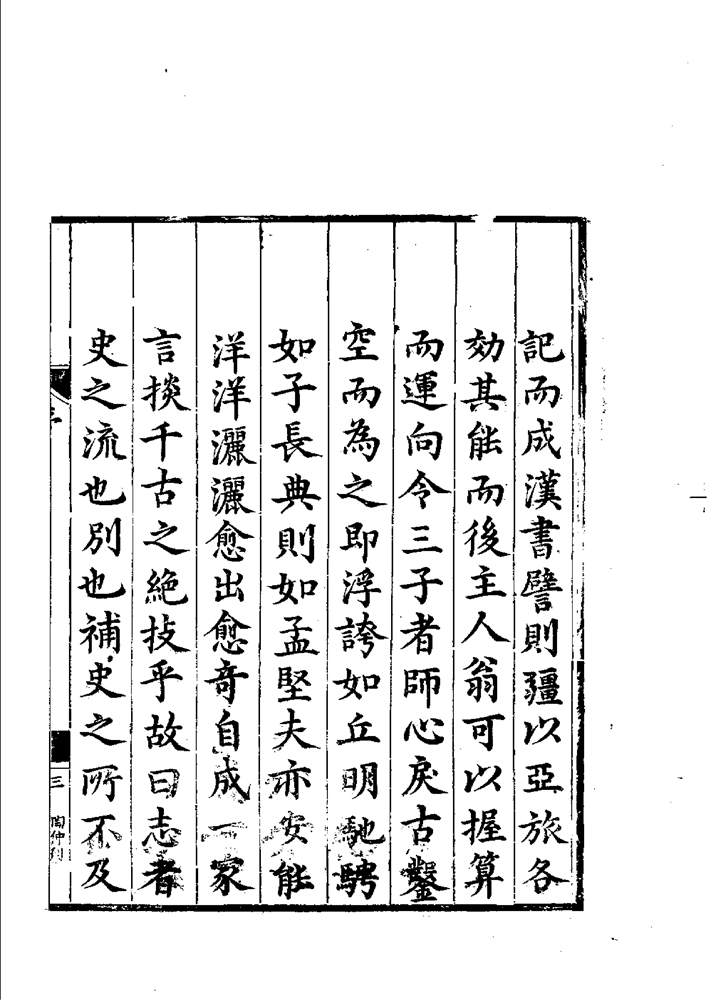 記而成漢書譬則疆以亞旅各
効其能而後主人翁可以握算
而運向令三子者師心戾古鑿
空而為之即浮誇如丘明馳騁
如子長典則如孟堅夫亦安能
洋洋灑灑愈出愈竒自成一家
言掞千古之絶技乎故曰志者
史之流也別也補史之所不及
三
陶仲刊